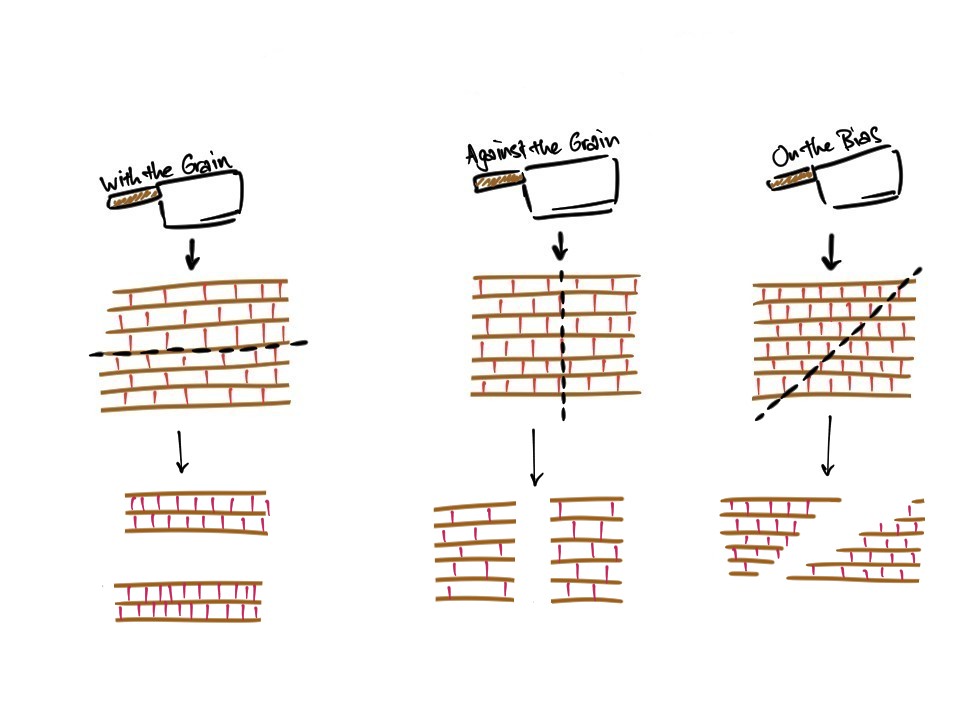 With the Grain
Against the Grain
On the Bias